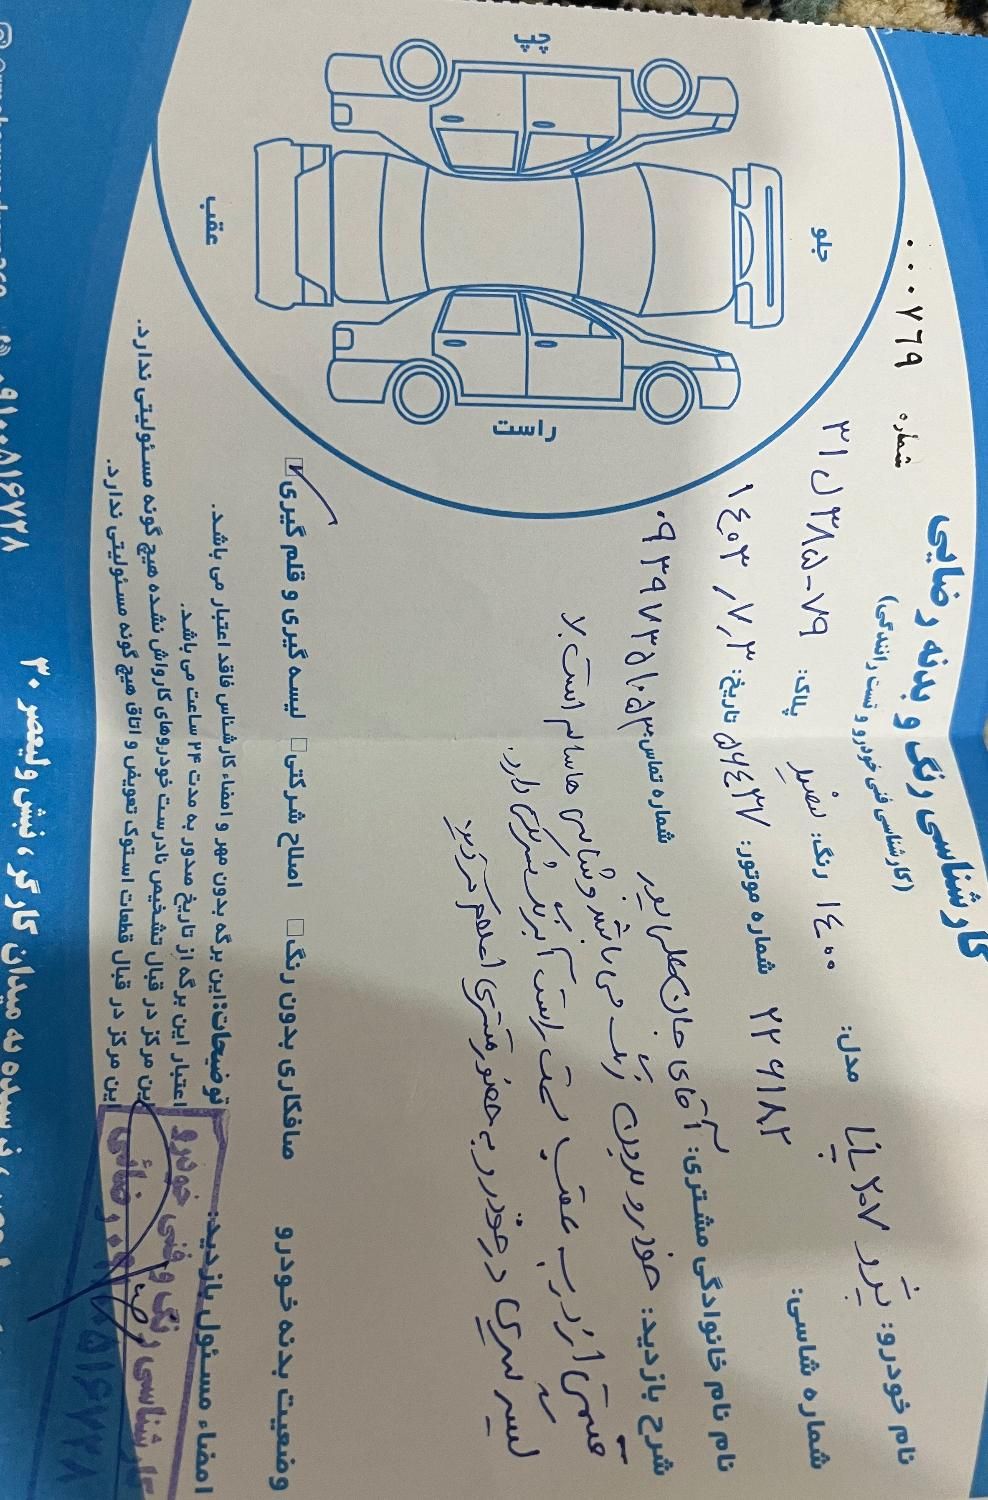 کارشناسی رنگ و بدنه رضایی
(کارشناسی فنی خودرو و تست رانندگی)
شماره ۰۰۰۷۶۹
جلو
چپ
عقب
راست
نام خودرو: پژو ۲۰۷ پانا مدل: ۱۴۰۰ رنگ: سفید پلاک: ۷۹-۳۸۵ل۳۱
شماره شاسی: ۲۲۶۱۸۲ شماره موتور: ۵۶۴۳۷ تاریخ: ۱۴۰۳/۷/۳
نام نام خانوادگی مشتری: آقای شماره تماس: ۰۹۳۹۷۳۵۱۰۵۳
شرح بازدید: خودرو بدون رنگ می باشد و شاسی ها سالم است
قسمتی از درب عقب سمت راست
لیسه گیری در خودرو به حضور مشتری اعلام گردید
وضعیت بدنه خودرو صافکاری بدون رنگ اصلاح شرکتی لیسه گیری و قلم گیری
امضاء مسئول بازدید:
توضیحات: این برگه بدون مهر و امضاء کارشناس فاقد اعتبار می باشد.
اعتبار این برگه از تاریخ صدور به مدت ۲۴ ساعت می باشد.
این مرکز در قبال تشخیص نادرست خودروهای کارواش نشده هیچ گونه مسئولیتی ندارد.
این مرکز در قبال قطعات استوک تعویض و اتاق هیچ گونه مسئولیتی ندارد.
کارشناسی رنگ و فنی خودرو
رضائی
نرسیده به میدان کارگر، نبش ولیعصر ۳۰